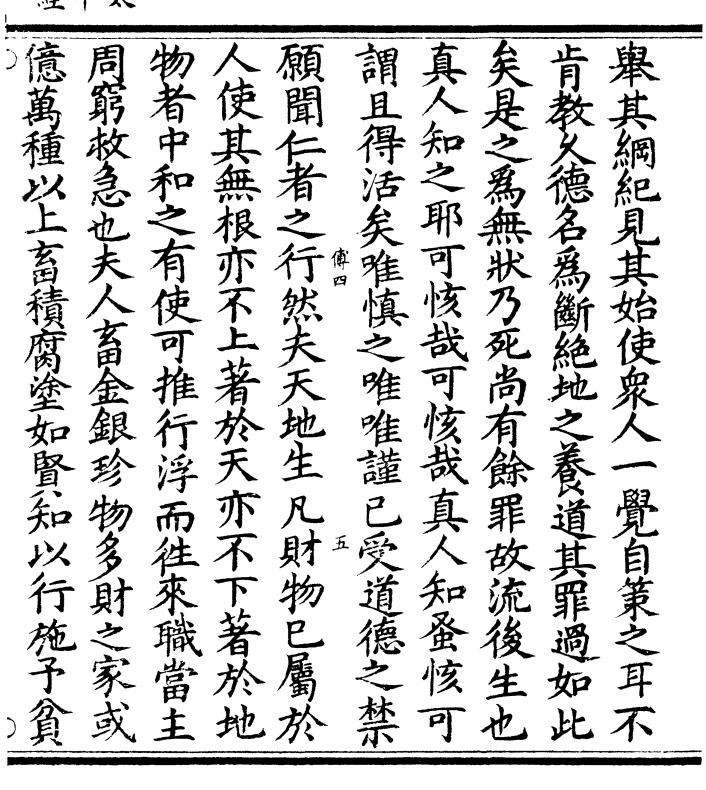 舉其綱紀見其始使衆人一覺自策之耳不
肯教人德名爲斷絶地之養道其罪過如此
矣是之爲無狀乃死尚有餘罪故流後生也
真人知之耶可恢哉可恢哉真人知蚤恢可
謂且得活矣唯慎之唯唯謹已受道德之禁
傅四
五
願聞仁者之行然夫天地生凡財物已屬於
人使其無根亦不上著於天亦不下著於地
物者中和之有使可推行浮而徃來職當主
周窮救急也夫人畜金銀珍物多財之家或
億萬種以上畜積腐塗如賢知以行施予貧